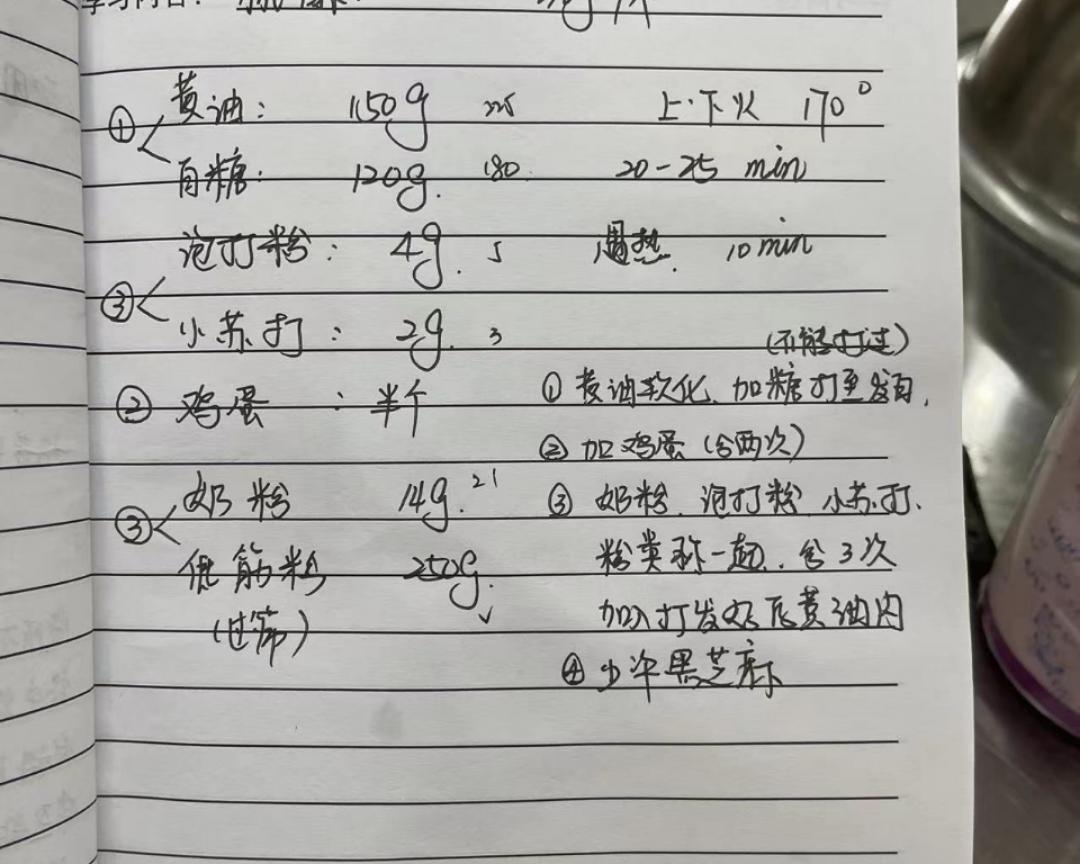 学习内容:
① 黄油: 150g 225 上.下火 170°
白糖: 120g. 180. 20-25 min
泡打粉: 4g. 5 预热. 10min
③
小苏打: 2g. 3
(不能打过)
② 鸡蛋: 半个 ① 黄油软化. 加糖打至发白.
② 加鸡蛋(分两次)
奶粉 14g. 21 ③ 奶粉. 泡打粉. 小苏打.
③ 粉类称一起. 分3次
低筋粉 250g.
(过筛) 加入打发好后黄油内
④ 少许黑芝麻